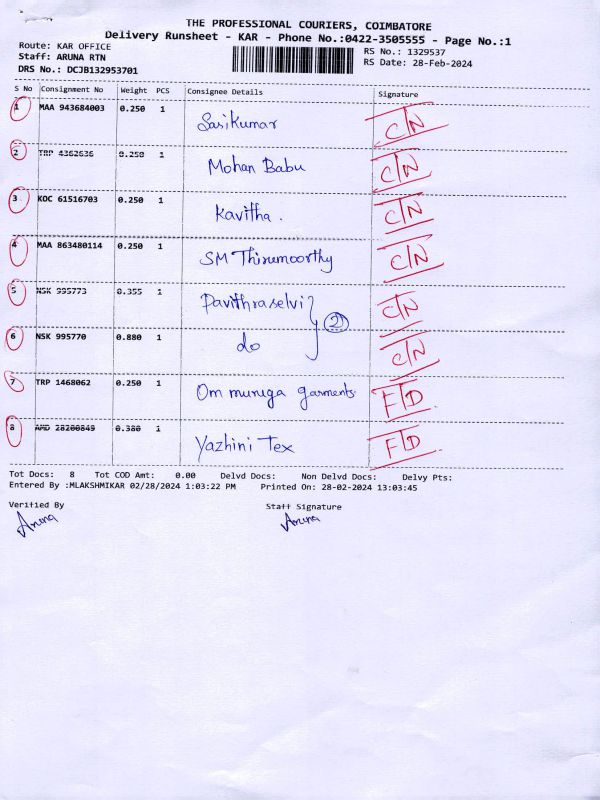 THE PROFESSIONAL COURIERS, COIMBATORE
Delivery Runsheet - KAR - Phone No.:0422-3505555 - Page No.:1
Route: KAR OFFICE RS No.: 1329537
Staff: ARUNA RTN RS Date: 28-Feb-2024
DRS No.: DCJB132953701
S No Consignment No Weight PCS Consignee Details Signature
1 MAA 943684003 0.250 1 Sasikumar C/N
2 TRP 4362636 0.250 1 Mohan Babu C/N
3 KOC 61516703 0.250 1 Kavitha. C/N
4 MAA 863480114 0.250 1 SM Thirumoorthy C/N
5 NSK 995773 0.355 1 Pavithraselvi C/N
2
6 NSK 995770 0.880 1 do C/N
7 TRP 1468062 0.250 1 Om muruga garments F/D
8 AMD 28200849 0.380 1 Yazhini Tex F/D
Tot Docs: 8 Tot COD Amt: 0.00 Delvd Docs: Non Delvd Docs: Delvy Pts:
Entered By :MLAKSHMIKAR 02/28/2024 1:03:22 PM Printed On: 28-02-2024 13:03:45
Verified By Staff Signature
Aruna Aruna